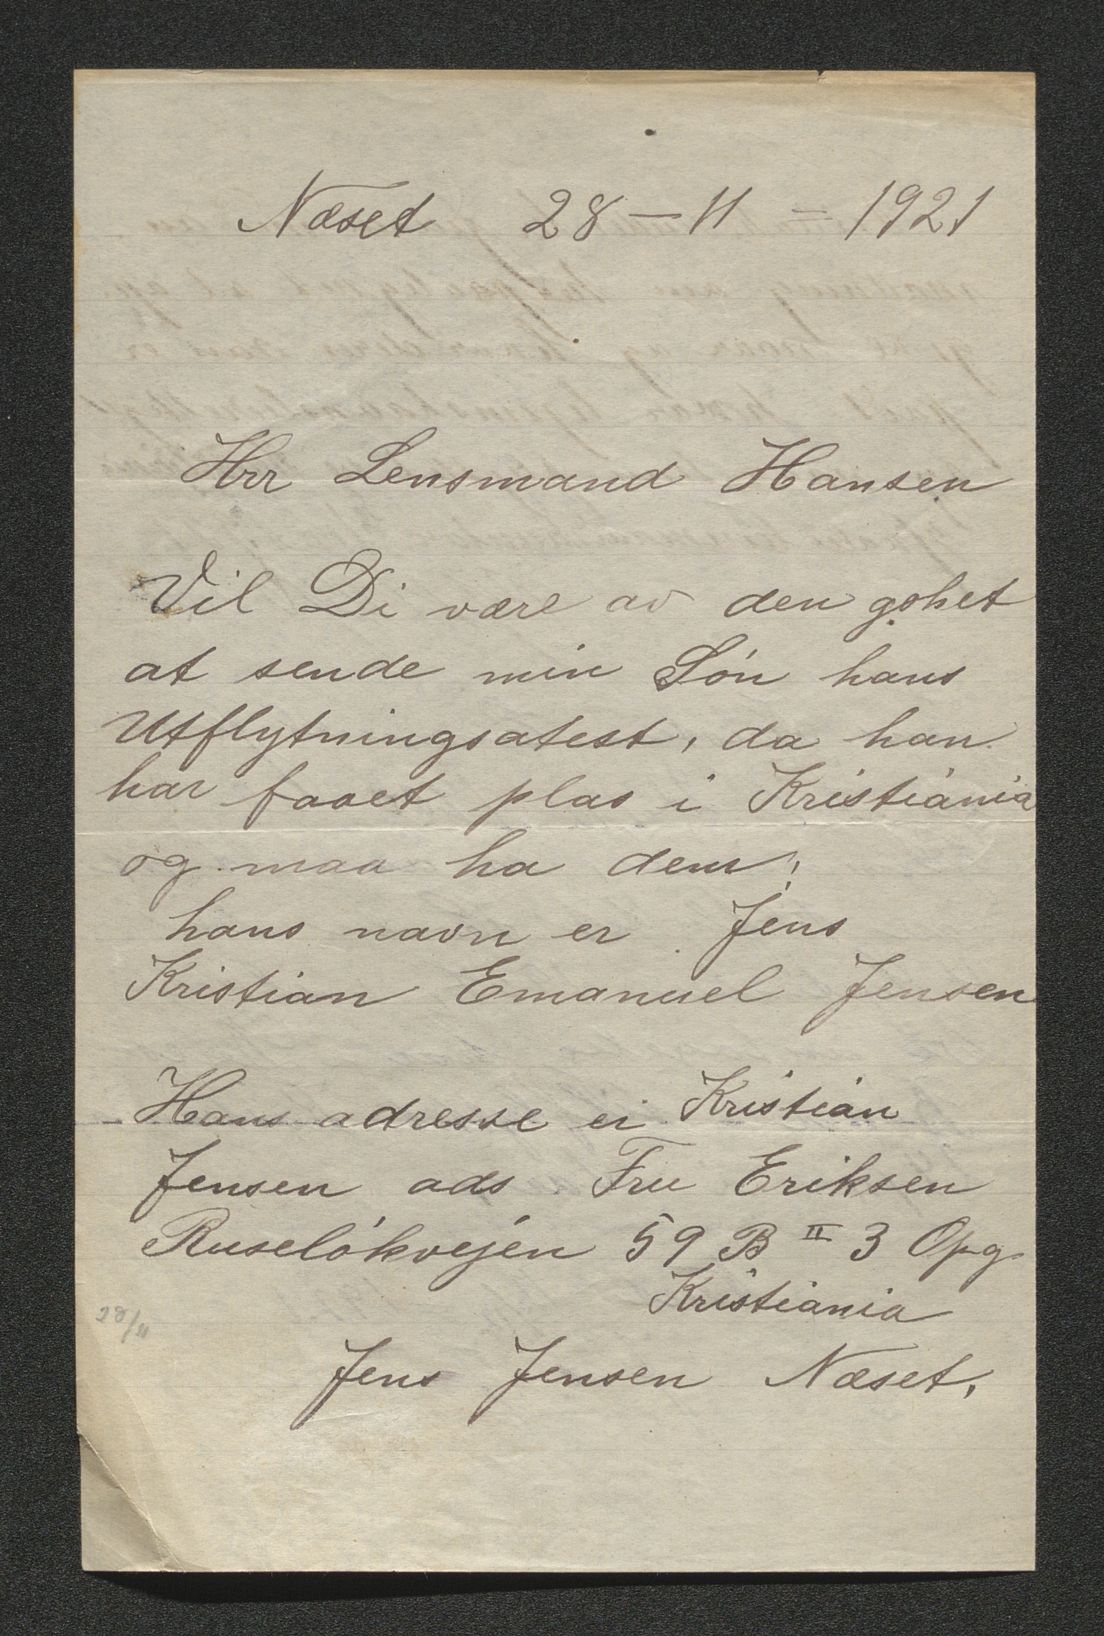 Næset 28 – 11 – 1921
Hrr Lensmand Hansen
Vil Di være av den gohet
at sende min Søn hans
Utflytningsatest, da han
har faaet plas i Kristiania
og maa ha dem,
hans navn er Jens
Kristian Emanuel Jensen
Hans adresse er Kristian
Jensen ads Fru Eriksen
Ruseløkvejen 59 B II 3 Opg.
Kristiania
28/11
Jens Jensen Næset,